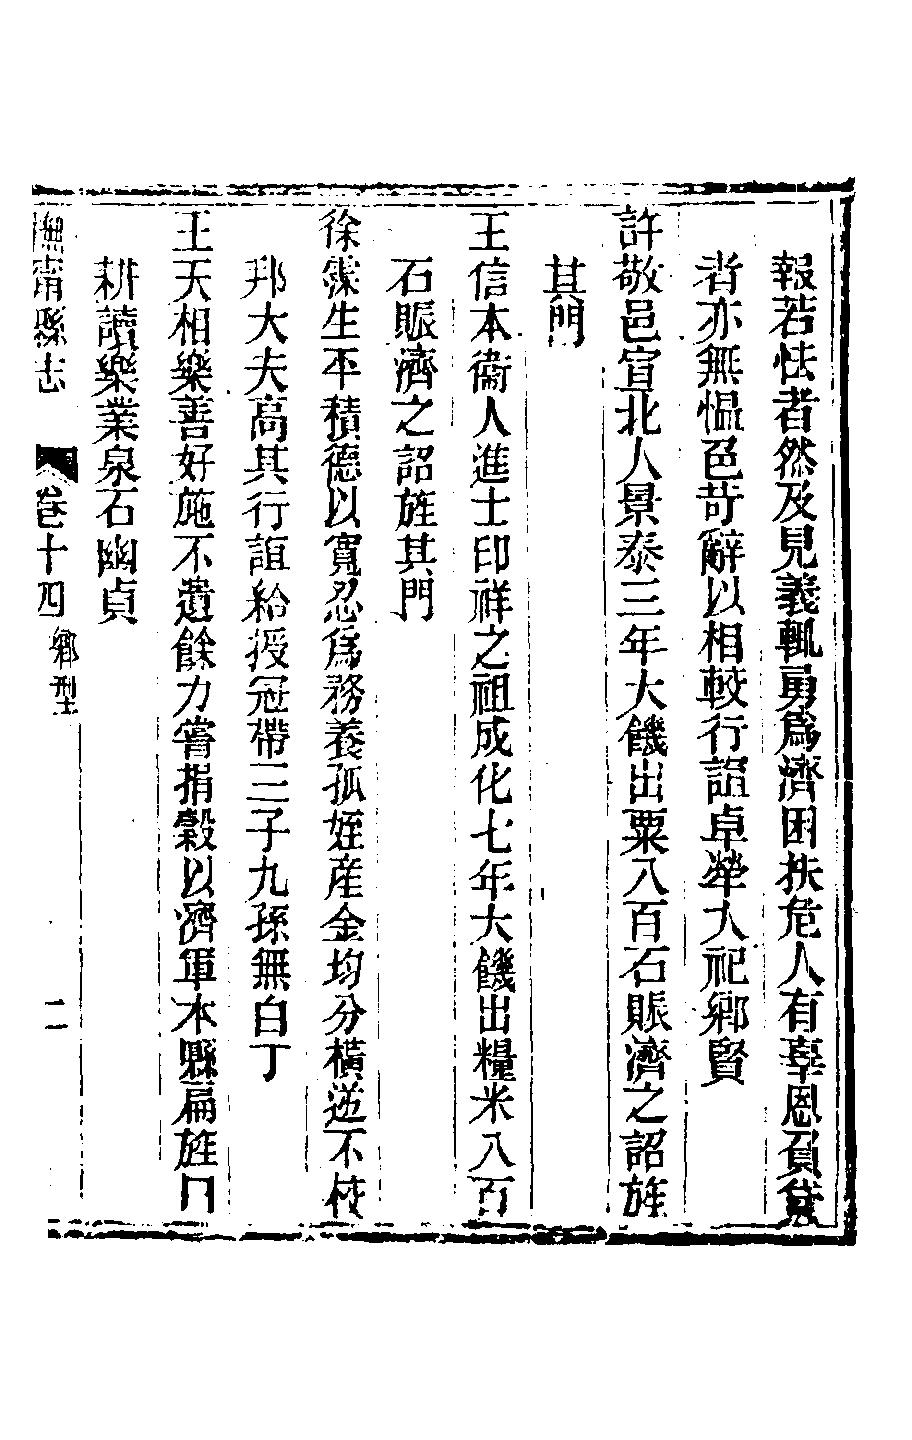 報若怯者然及見義輒勇爲濟困扶危人有辜恩負貸
者亦無慍色苛辭以相較行誼卓犖大祀鄉賢
許敬邑宣北人景泰三年大饑出粟八百石賑濟之詔旌
其門
王信本衞人進士印祥之祖成化七年大饑出糧米八百
石賑濟之詔旌其門
徐 生平積德以寬忍爲務養孤姪產金均分橫逆不校
邦大夫高其行誼給授冠帶三子九孫無白丁
王天相樂善好施不遺餘力嘗捐穀以濟軍本縣扁旌門
耕讀樂業泉石幽貞
撫甯縣志 卷十四 鄉型 二